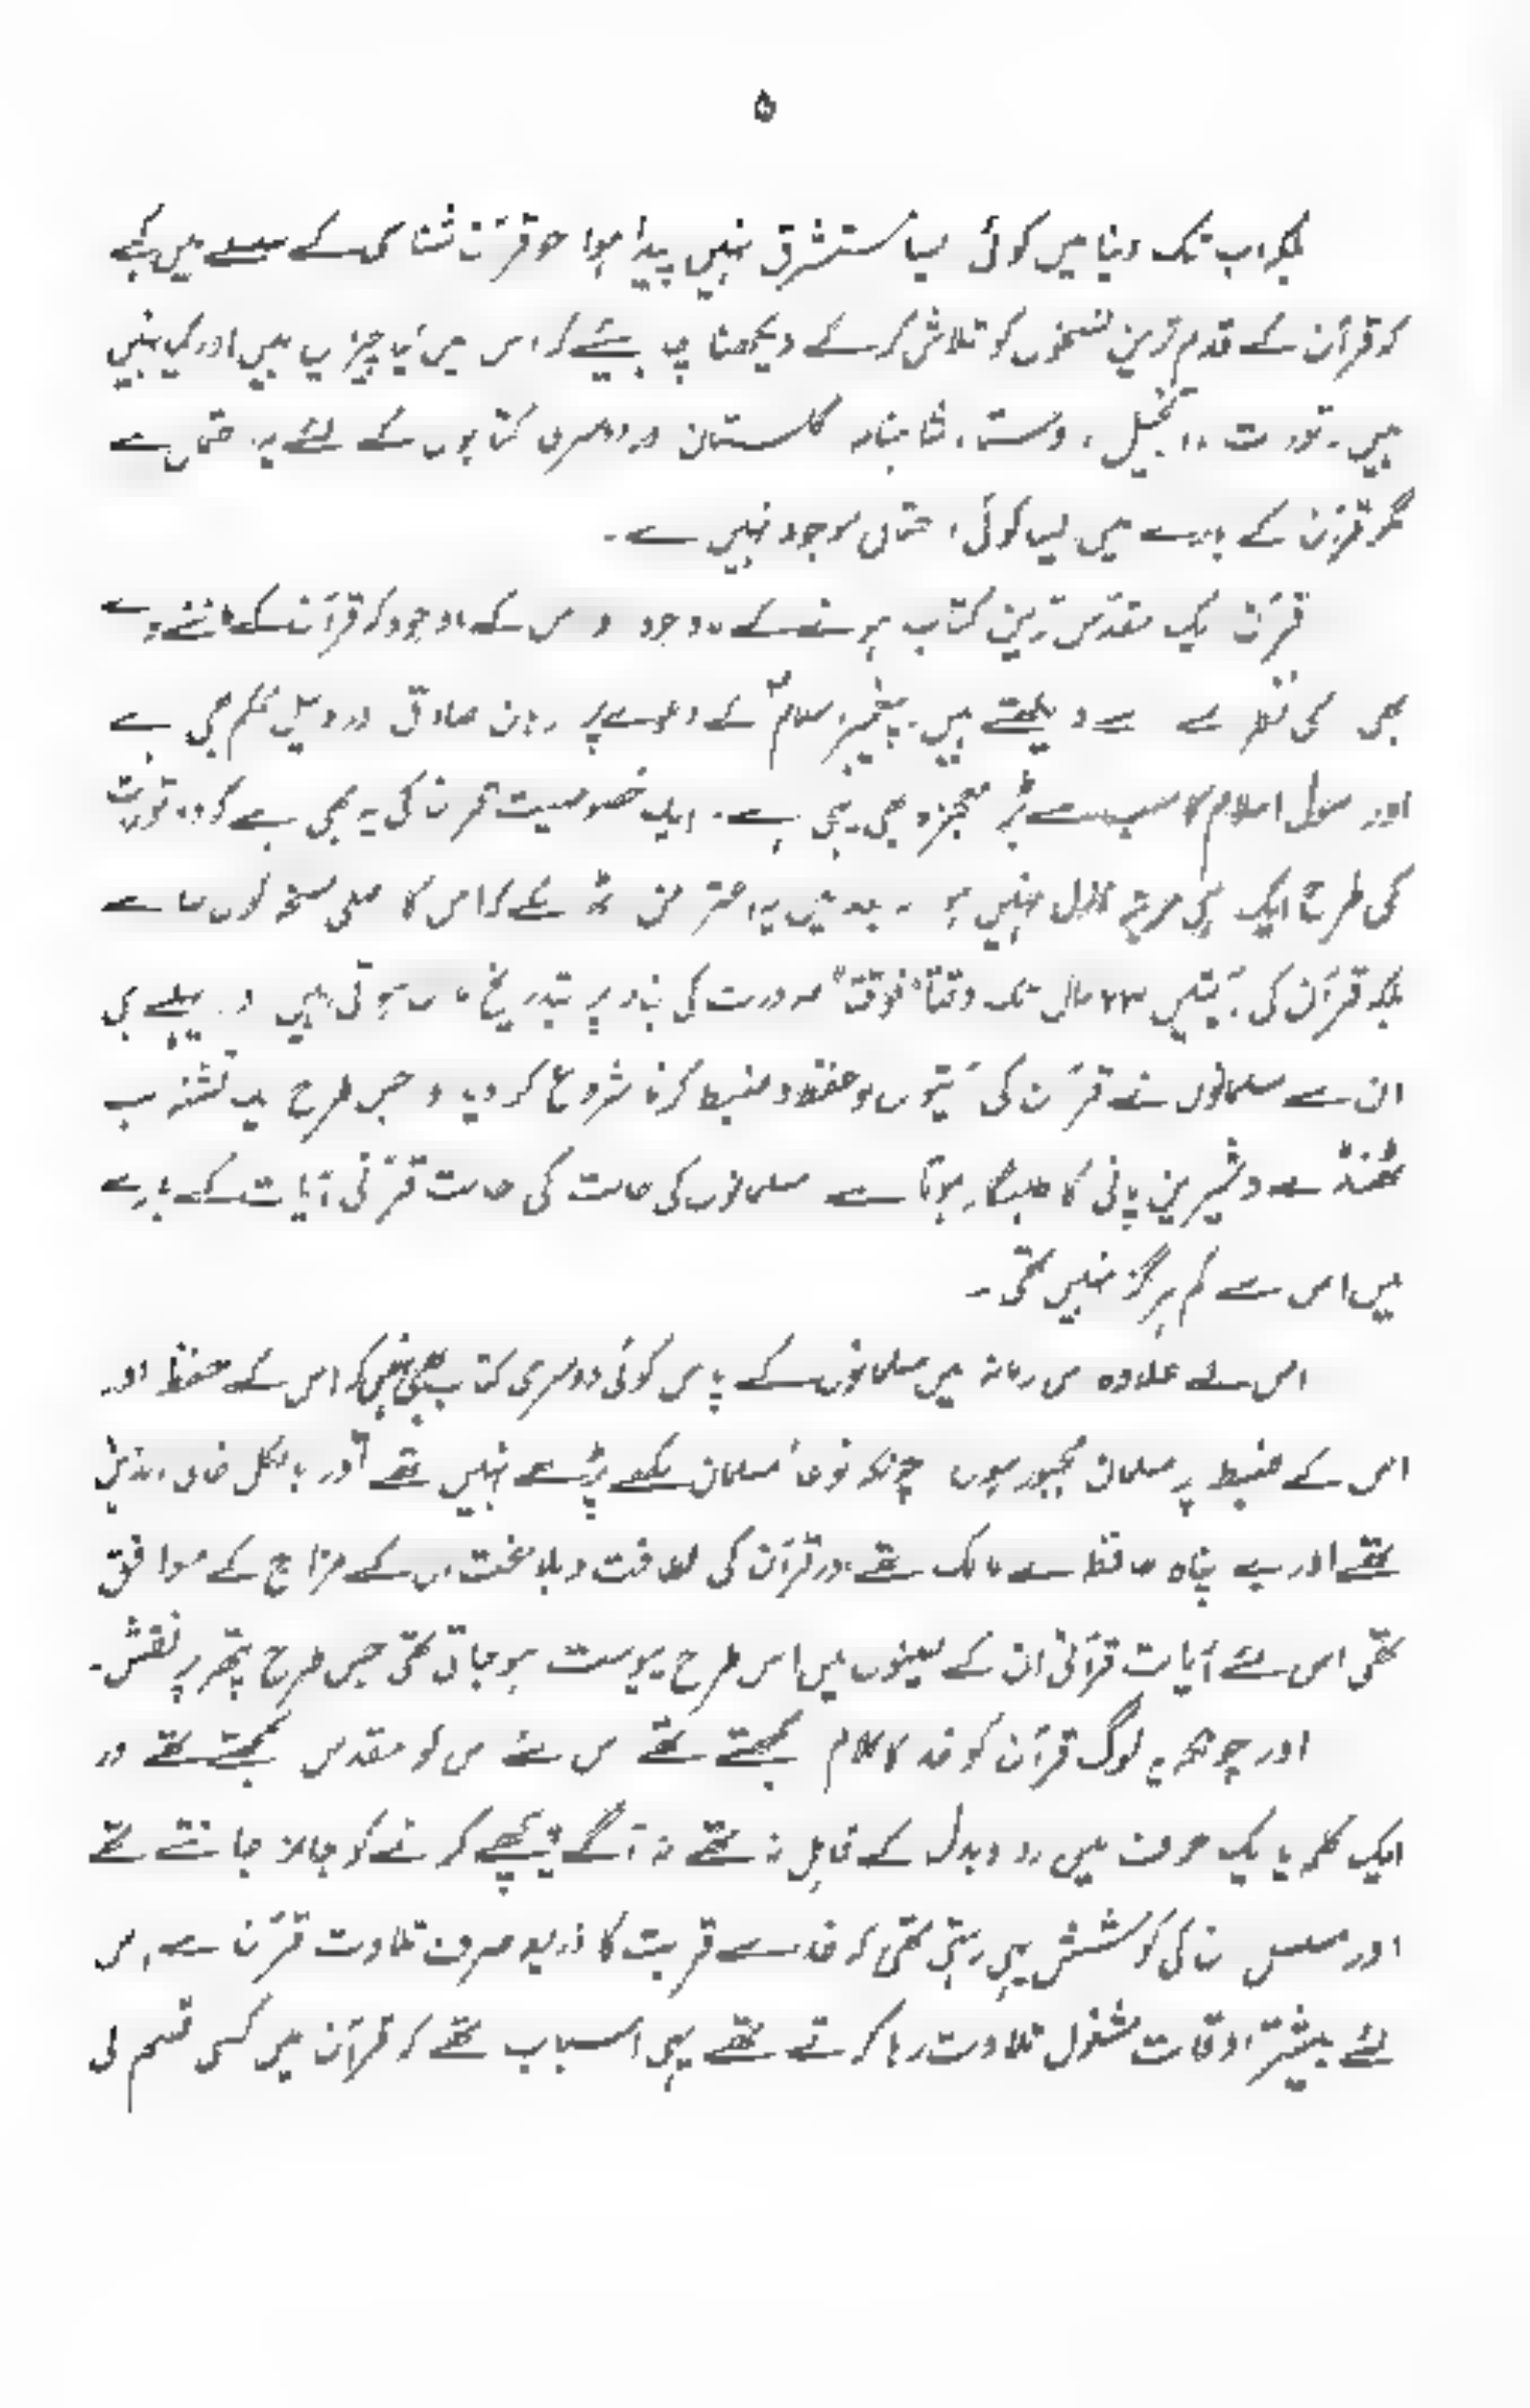 ۵
بلکہ اب تک دنیا میں کوئی ایسا مستشرق نہیں پیدا ہوا جو قرآن شناسی کے سلسلے میں کہے
کہ قرآن کے قدیم ترین نسخوں کو تلاش کر کے دیکھنا چاہیئے کہ اس میں کیا چیزیں ہیں اور کیا نہیں
ہیں۔ توریت، انجیل، اوستا، شاہنامہ گلستان اور دوسری کتابوں کے لئے یہ احتمال ہے
مگر قرآن کے بارے میں ایسا کوئی احتمال موجود نہیں ہے۔
قرآن ایک مقدس ترین کتاب ہونے کے باوجود اور اس کے باوجود کہ قرآن کے ماننے والے
بھی اسی نظر سے اسے دیکھتے ہیں۔ پیغمبر اسلامؐ کے دعوے پر برہان صادق اور دلیل محکم بھی ہے
اور رسول اسلام کا سب سے بڑا معجزہ بھی یہی ہے۔ ایک خصوصیت قرآن کی یہ بھی ہے کہ وہ توریت
کی طرح ایک ہی مرتبہ نازل نہیں ہوا۔ بعد میں یہ اعتراض نہ اٹھے کہ اس کا اصلی نسخہ کون سا ہے
بلکہ قرآن کی آیتیں ۲۳ سال تک وقتاً فوقتاً ضرورت کی بناء پر بتدریج نازل ہوتی رہیں اور پہلے ہی
دن سے مسلمانوں نے قرآن کی آیتوں کو حفظ و ضبط کرنا شروع کر دیا اور جس طرح ایک تشنہ لب
ٹھنڈے و شیریں پانی کا طلبگار ہوتا ہے مسلمانوں کی حالت کی حالت قرآنی آیات کے بارے
میں اس سے کم ہرگز نہیں تھی۔
اس کے علاوہ اس زمانہ میں مسلمانوں کے پاس کوئی دوسری کتاب بھی نہیں تھی کہ اس کے حفظ اور
اس کے ضبط پر مسلمان مجبور ہوں چونکہ نوعاً مسلمان لکھے پڑھے نہیں تھے اور بالکل خالی الذہن
تھے اور بے پناہ حافظے کے مالک تھے اور قرآن کی لطافت و بلاغت ان کے مزاج کے موافق
تھی اس لئے آیات قرآنی ان کے سینوں میں اس طرح پیوست ہو جاتی تھی جس طرح پتھر پر نقش۔
اور چونکہ یہ لوگ قرآن کو خدا کا کلام سمجھتے تھے اس لئے اس کو مقدس سمجھتے تھے اور
ایک کلمہ یا ایک حرف میں رد و بدل کے قابل نہ تھے نہ آگے پیچھے کرنے کو جائز جانتے تھے
اور مسلسل ان کی کوشش یہی رہتی تھی کہ خدا سے قربت کا ذریعہ صرف تلاوت قرآن ہے، اس
لئے بیشتر اوقات مشغول تلاوت رہا کرتے تھے یہی اسباب تھے کہ قرآن میں کسی قسم کی